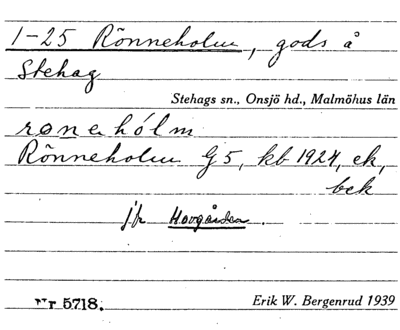 1-25 Rönneholm, gods å
Stehag
Stehags sn., Onsjö hd., Malmöhus län
rønehólm
Rönneholm G5, kb 1924, ek,
bek
jfr Hovgården.
Nr 5718.
Erik W. Bergenrud 1939